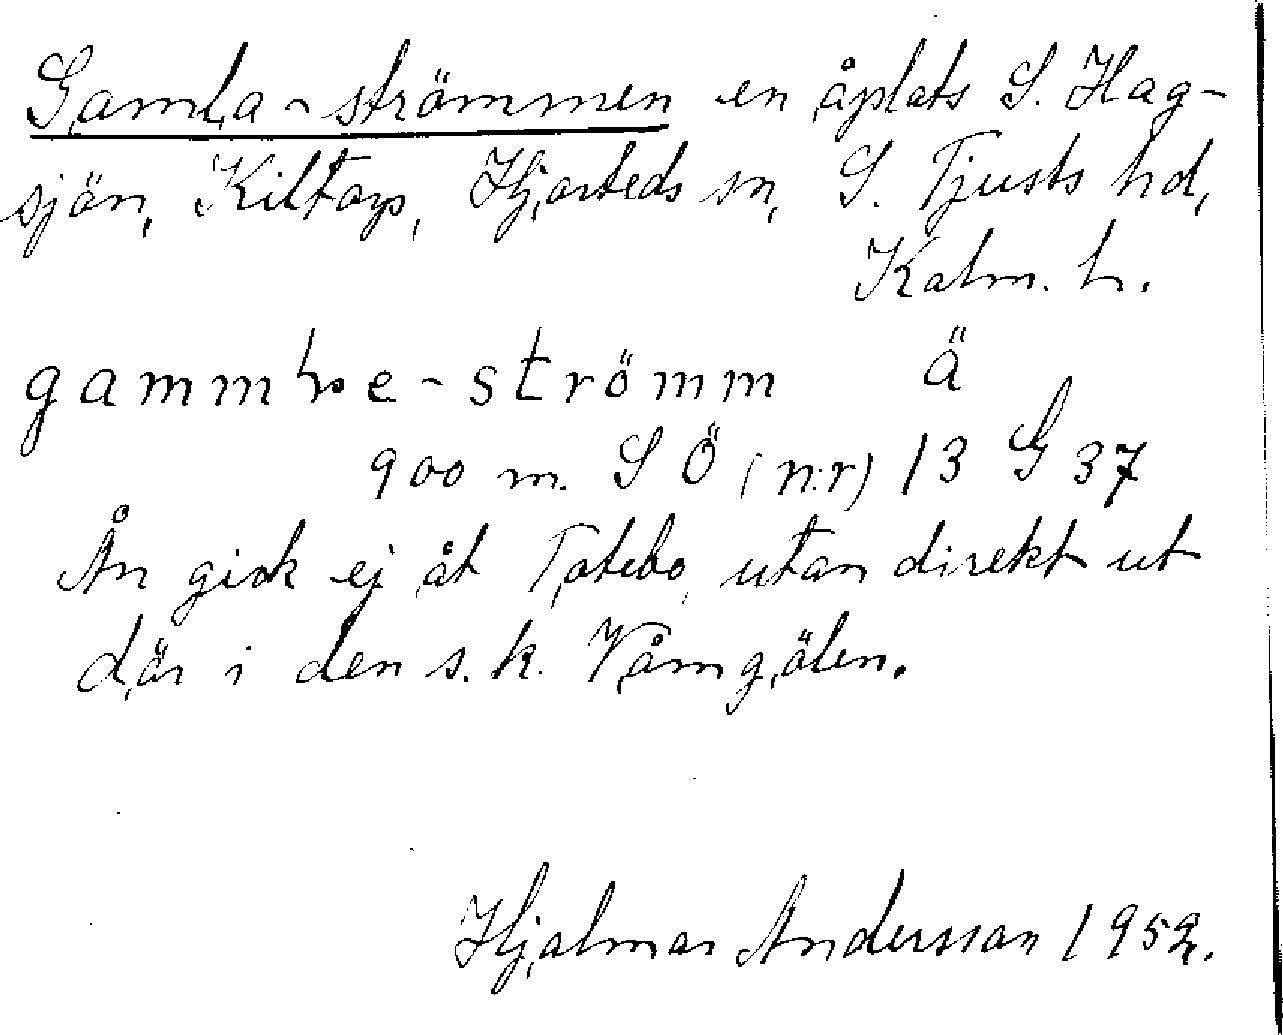 Gamla-strömmen en åplats S. Hag-
sjön, Kiltorp, Hjorteds sn, S. Tjusts hd,
Kalm. l.
-strömm ä
900 m. S Ö (n:r) 13 G 37
Ån gick ej åt Totebo, utan direkt ut
där i den s.k. Våmgölen.
Hjalmar Andersson 1952.